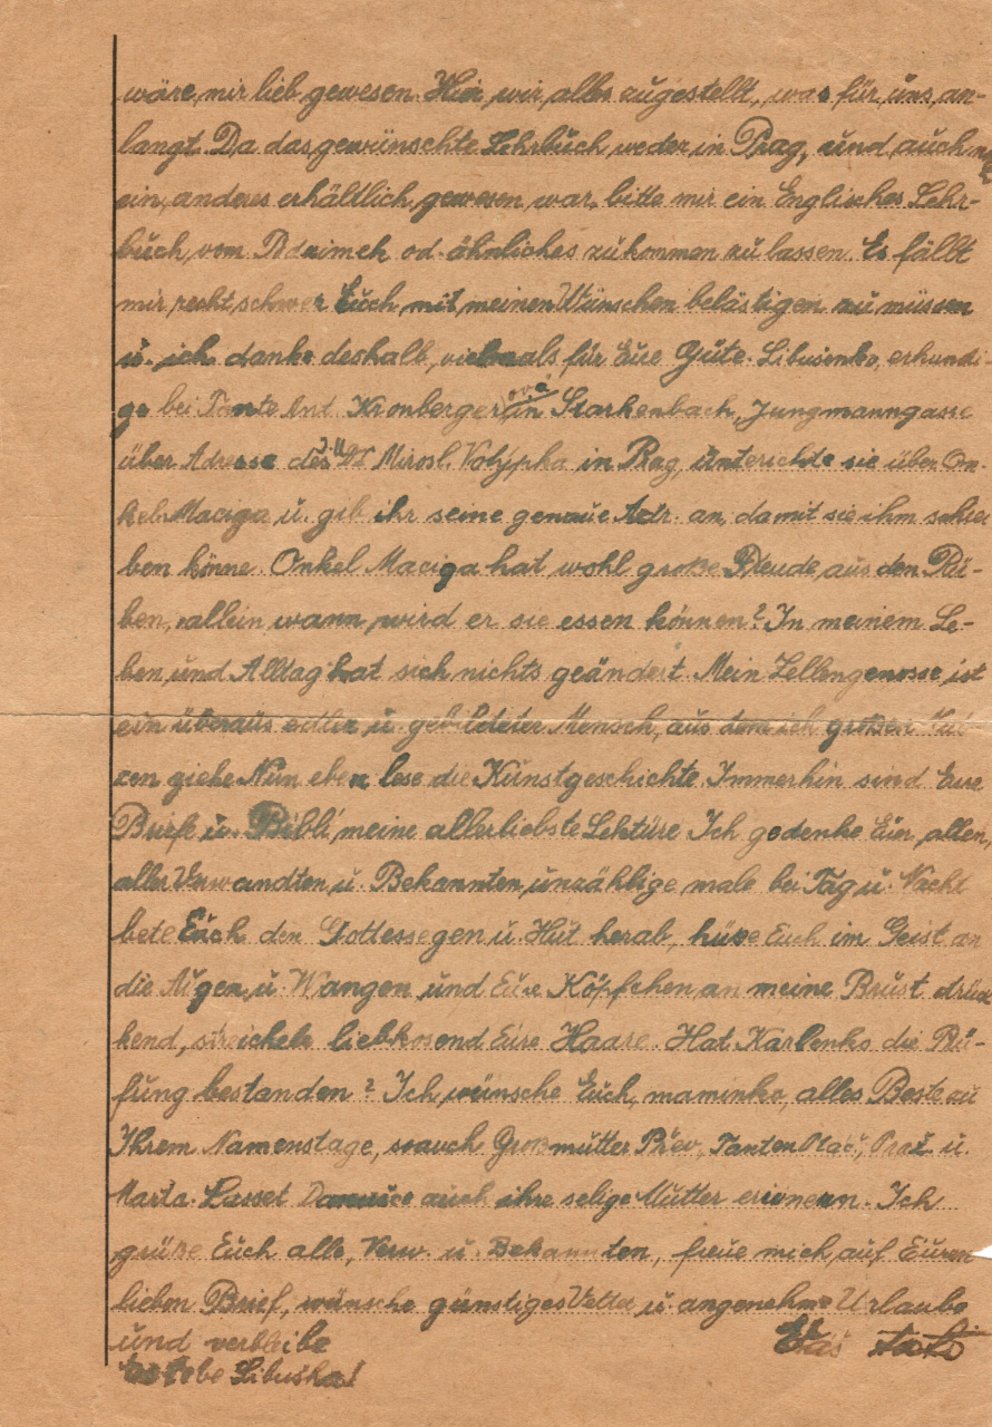 wäre mir lieb gewesen. Hier wir alles zugestellt, was für uns an-
langt. Da das gewünschte Lehrbuch weder in Prag, und auch
ein anderes erhältlich gewesen war, bitte mir ein Englisches Lehr-
buch vom od. ähnliches zukommen zu lassen. Es fällt
mir recht schwer Euch mit meinen Wünschen belästigen zu müssen
u. ich danke deshalb, vielmals für Eure Güte. Libušenko, erkundi-
ge bei Tante And. Kronberger ová in Starkenbach, Jungmanngasse
über Adresse des Mirosl. Votýpka in Prag, unterichte sie über On-
kel Maciga u. gib ihr seine genaue Adr. an, damit sie ihm schrei
ben könne. Onkel Maciga hat wohl große Freude aus den Rü-
ben, allein wann wird er sie essen können? In meinem Le-
ben und Alltag hat sich nichts geändert. Mein Zellengenosse ist
ein überaus edler u. gebildeter Mensch, aus dem ich großen Nut
zen ziehe Nun eben lese die Kunstgeschichte. Immerhin sind Eure
Briefe u. Bibli meine allerliebste Lektüre Ich gedenke Eier allen,
aller Verwandten u. Bekannten unzählige male bei Tag u. Nacht
bete Euch den Gottessegen u. Hut herab, küße Euch im Geist an
die Augen u. Wangen und Eure Köpfchen an meine Brust drük
kend, streichele liebkosend Eure Haare. Hat Karlenko die Prü-
fung bestanden? Ich wünsche Euch, maminko, alles Beste zu
Ihrem Namenstage, sowie auch Großmutter Přev., Tanten u.
Marta. Lasset Danuše auch ihre selige Mutter erinnern. Ich
grüße Euch alle, Verw. u. Bekannten, freue mich auf Euren
lieben Brief, wünsche günstiges Vetter u. angenehme Urlaube
und verbleibe Váš táta
Libuška!